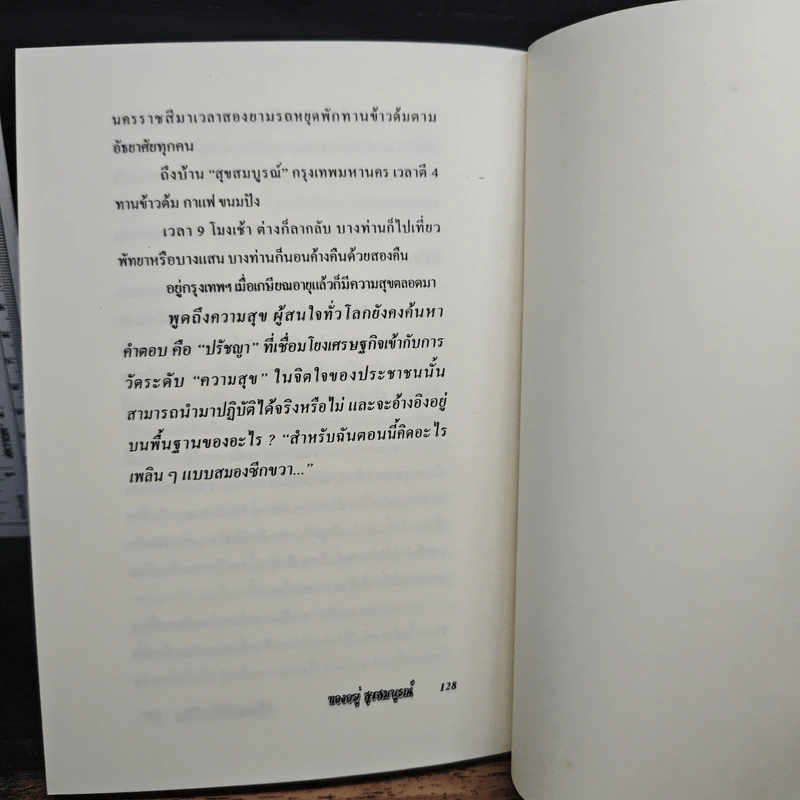 นครราชสีมาเวลาสองยามรถหยุดพักทานข้าวต้มตาม
อัธยาศัยทุกคน
ถึงบ้าน “สุขสมบูรณ์” กรุงเทพมหานคร เวลาตี 4
ทานข้าวต้ม กาแฟ ขนมปัง
เวลา 9 โมงเช้า ต่างก็ลากลับ บางท่านก็ไปเที่ยว
พัทยาหรือบางแสน บางท่านก็นอนค้างคืนด้วยสองคืน
อยู่กรุงเทพฯ เมื่อเกษียณอายุแล้วก็มีความสุขตลอดมา
พูดถึงความสุข ผู้สนใจทั่วโลกยังคงค้นหา
คำตอบ คือ “ปรัชญา” ที่เชื่อมโยงเศรษฐกิจเข้ากับการ
วัดระดับ “ความสุข” ในจิตใจของประชาชนนั้น
สามารถนำมาปฏิบัติได้จริงหรือไม่ และจะอ้างอิงอยู่
บนพื้นฐานของอะไร ? “สำหรับฉันตอนนี้คิดอะไร
เพลิน ๆ แบบสมองซีกขวา...”
ทองอยู่ สุขสมบูรณ์ 128